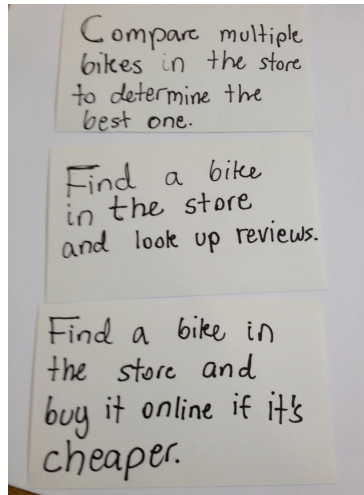 Compare multiple
bikes in the store
to determine the
best one.
Find a bike
in the store
and look up reviews.
Find a bike in
the store and
buy it online if it's
cheaper.